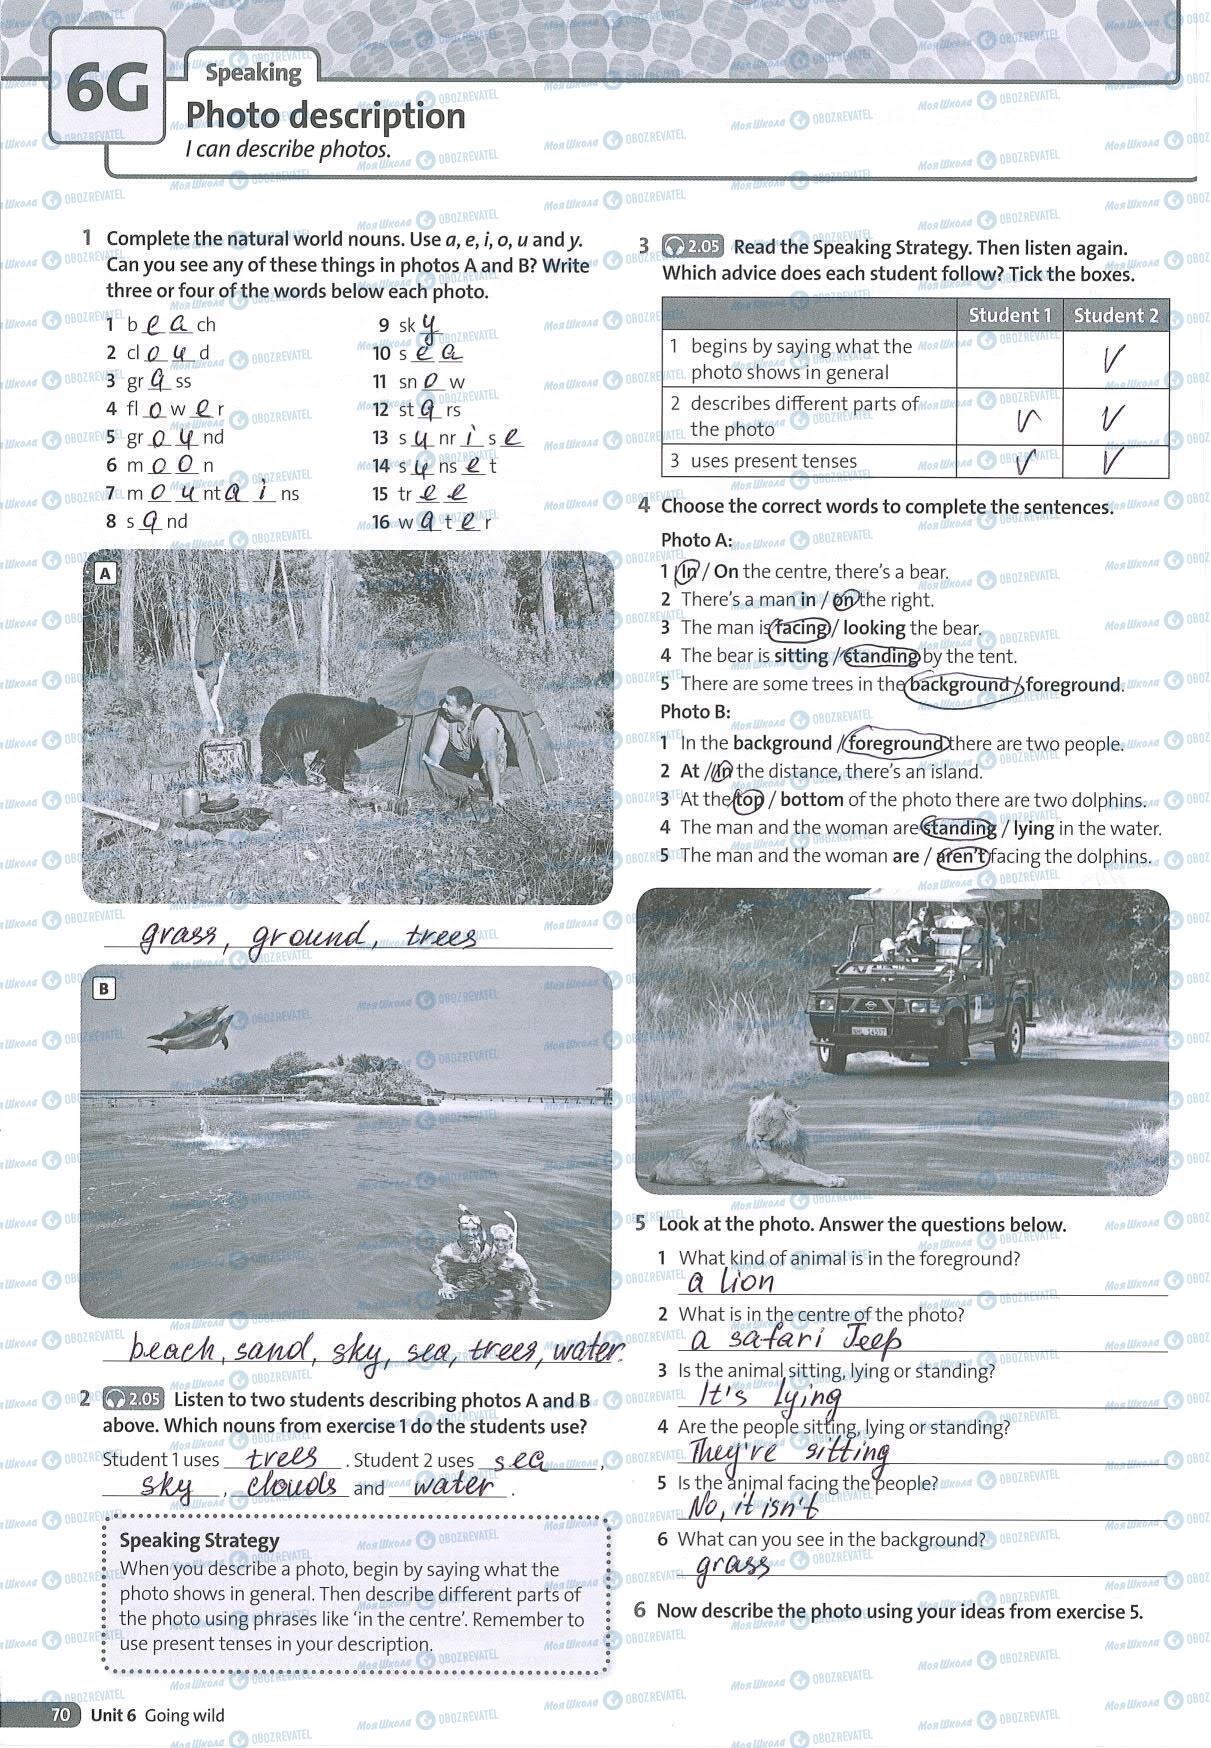 6G
Speaking
Photo description
I can describe photos.
1 Complete the natural world nouns. Use a, e, i, o, u and y.
Can you see any of these things in photos A and B? Write
three or four of the words below each photo.
1 b e a ch
2 cl o u d
3 gr a ss
4 fl o w e r
5 gr o u nd
6 m o o n
7 m o u nt a i ns
8 s a nd
9 sk y
10 s e a
11 sn o w
12 st a rs
13 s u nr i s e
14 s u ns e t
15 tr e e
16 w a t e r
A
grass, ground, trees
B
beach, sand, sky, sea, trees, water.
2 2.05 Listen to two students describing photos A and B
above. Which nouns from exercise 1 do the students use?
Student 1 uses trees . Student 2 uses sea ,
sky , clouds and water .
Speaking Strategy
When you describe a photo, begin by saying what the
photo shows in general. Then describe different parts of
the photo using phrases like ‘in the centre’. Remember to
use present tenses in your description.
3 2.05 Read the Speaking Strategy. Then listen again.
Which advice does each student follow? Tick the boxes.
Student 1 Student 2
1 begins by saying what the
photo shows in general ✓
2 describes different parts of
the photo ✓ ✓
3 uses present tenses ✓ ✓
4 Choose the correct words to complete the sentences.
Photo A:
1 In / On the centre, there’s a bear.
2 There’s a man in / on the right.
3 The man is facing / looking the bear.
4 The bear is sitting / standing by the tent.
5 There are some trees in the background / foreground.
Photo B:
1 In the background / foreground there are two people.
2 At / In the distance, there’s an island.
3 At the top / bottom of the photo there are two dolphins.
4 The man and the woman are standing / lying in the water.
5 The man and the woman are / aren’t facing the dolphins.
5 Look at the photo. Answer the questions below.
1 What kind of animal is in the foreground?
a lion
2 What is in the centre of the photo?
a safari Jeep
3 Is the animal sitting, lying or standing?
It's lying
4 Are the people sitting, lying or standing?
They're sitting
5 Is the animal facing the people?
No, it isn't
6 What can you see in the background?
grass
6 Now describe the photo using your ideas from exercise 5.
70 Unit 6 Going wild
МояШкола OBOZREVATEL